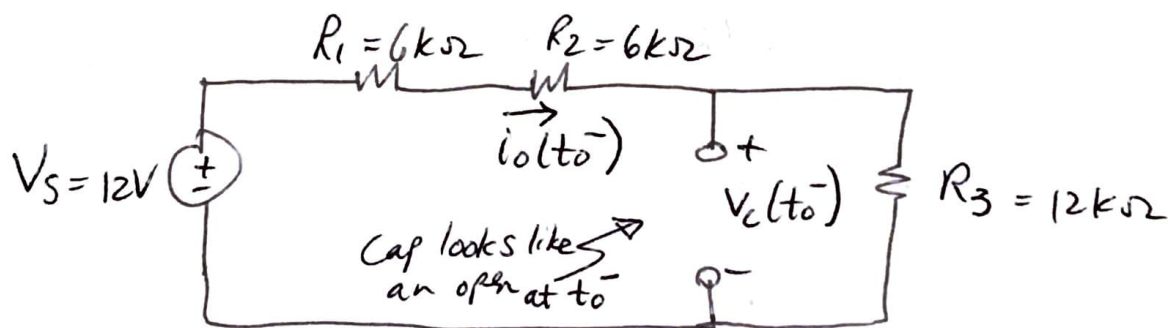 R₁ = 6kΩ
R₂ = 6kΩ
i₀(t₀⁻)
+
Vₛ = 12V
+
-
V_c(t₀⁻)
R₃ = 12kΩ
Cap looks like
an open at t₀⁻
-